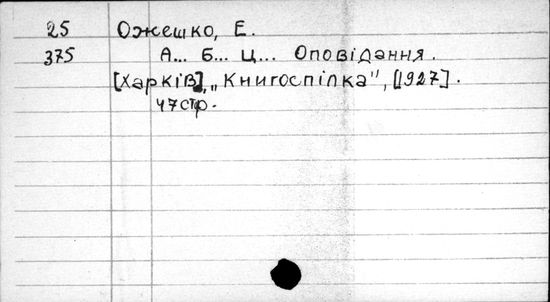 25 Ожешко, Е.
375 А... Б... Ц... Оповідання.
[Харків], „Книгоспілка", [1927].
47 стр.